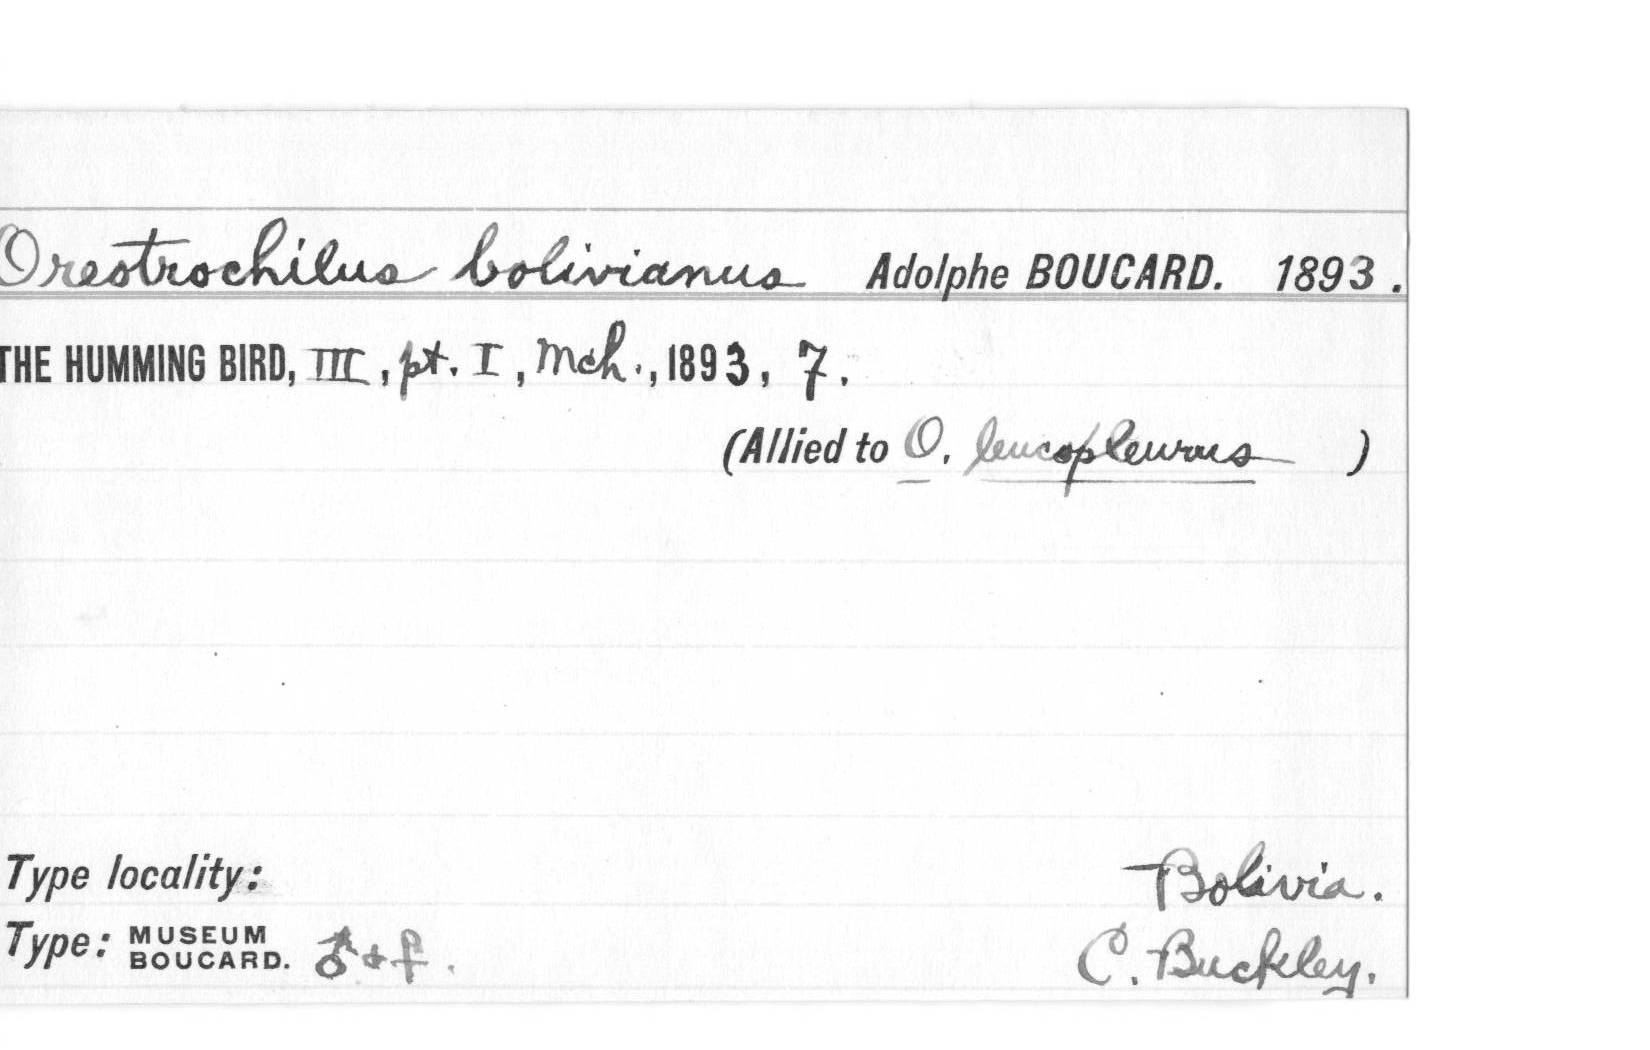 Orestrochilus bolivianus Adolphe BOUCARD. 1893.
THE HUMMING BIRD, III, pt. I, Mch., 1893, 7.
(Allied to O. leucopleurus )
Type locality: Bolivia.
Type: MUSEUM BOUCARD. ♂ + ♀. C. Buckley.